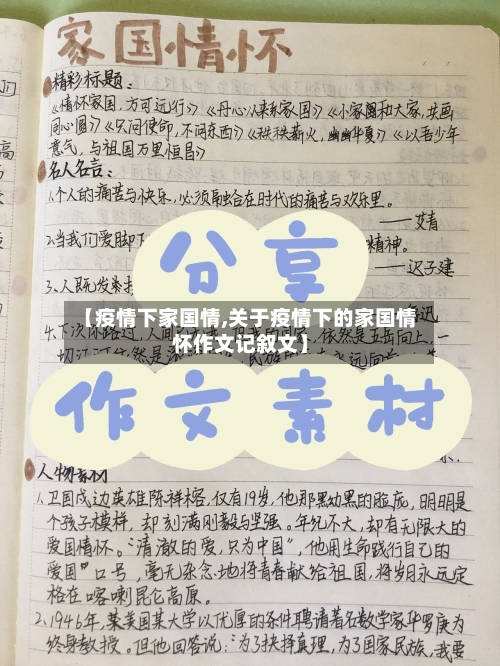 家国情怀
精彩标题:
《情怀家国,方可远行》《丹心以来系家国》《小家圆和大家,共画
同心圆》《只问使命,不问东西》《秩秩薪火,幽幽华夏》《以吾少年
意气,与祖国万里恒昌》
名人名言:
1.个人的痛苦与快乐,必须融合在时代的痛苦与欢乐里。
——艾青
2.当我们爱脚下
精神。
——迟子建
分享
3、人既发扬
迅
【疫情下家国情,关于疫情下的家国情
怀作文记叙文】
4.下次你路过,人间
依然是五岳向上,一
切江河依然是
作文素材
人物素材
1.卫国戍边英雄陈祥榕,仅有19岁,他那黑黝黑的脸庞,明明是
个孩子模样,却刻满刚毅与坚强。年纪不大,却有无限大的
爱国情怀。“清澈的爱,只为中国”,他用生命践行自己的
爱国”口号,毫无杂念地将青春献给祖国,将岁月永远定
格在喀喇昆仑高原。
2.1946年,某美国某大学以优厚的条件聘请著名数学家华罗庚为
终身教授。但他回答说:“为了抉择真理,为了国家民族,我要